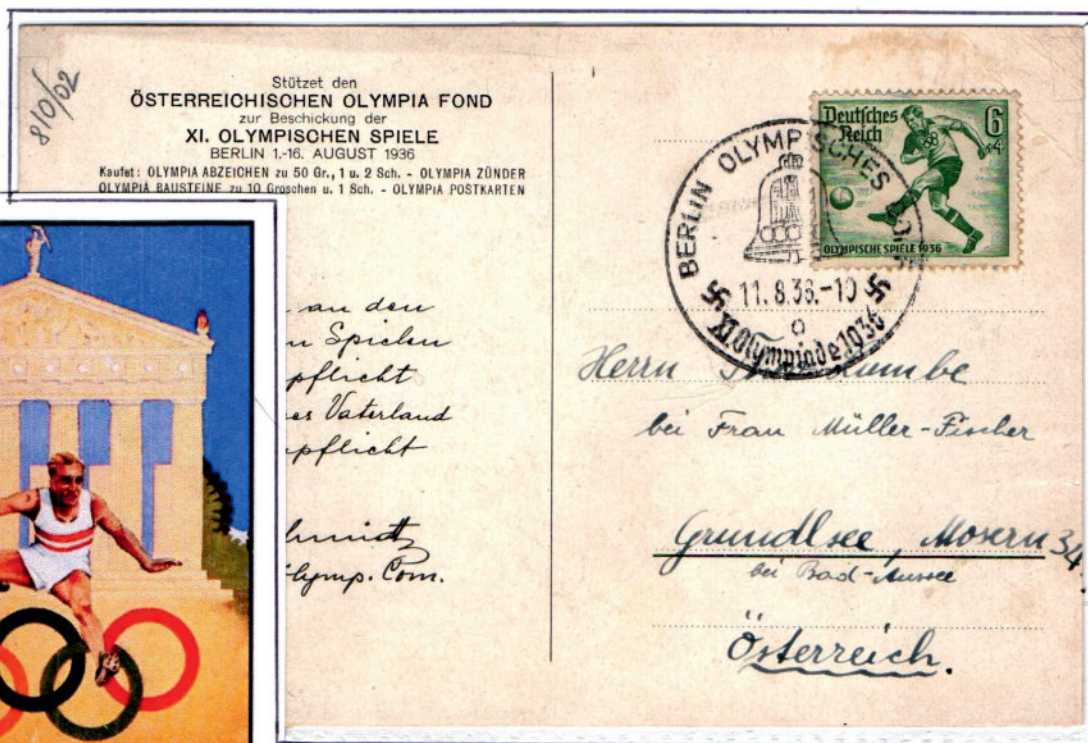 810/02
Stützet den
ÖSTERREICHISCHEN OLYMPIA FOND
zur Beschickung der
XI. OLYMPISCHEN SPIELE
BERLIN 1.-16. AUGUST 1936
Kaufet: OLYMPIA ABZEICHEN zu 50 Gr., 1 u. 2 Sch. - OLYMPIA ZÜNDER
OLYMPIA BAUSTEINE zu 10 Groschen u. 1 Sch. - OLYMPIA POSTKARTEN
an den
n Spielen
pflicht
es Vaterland
pflicht
hmidt
Olymp. Com.
Deutsches
Reich
6
+4
OLYMPISCHE SPIELE 1936
BERLIN OLYMPISCHES
11.8.36.-10
o
XI. Olympiade 1936
Herrn
bei Frau Müller-Fischer
Grundlsee, Mosern 34
bei Bad-Aussee
Österreich.